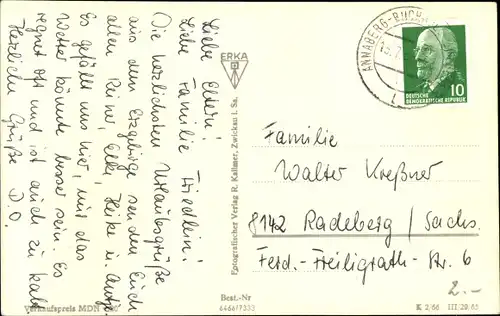 Liebe Eltern!
Liebe Familie Friedlein!
Die herzlichsten Urlaubsgrüße
aus dem Erzgebirge senden Euch
allen Reiner, Elke, Heike u.
Es gefällt uns hier, nur das
Wetter könnte besser sein. Es
regnet oft und ist auch zu kalt.
Herzliche Grüße D.O.
Verkaufspreis MDN
ERKA
Fotografischer Verlag R. Kallmer, Zwickau i. Sa.
Best.-Nr
6466/7333
ANNABERG-BUCH
10
DEUTSCHE
DEMOKRATISCHE REPUBLIK
Familie
Walter Kreßner
8142 Radeberg / Sachs.
Ferd.-Freiligrath-Str. 6
2.-
K 2/66 III/29/65